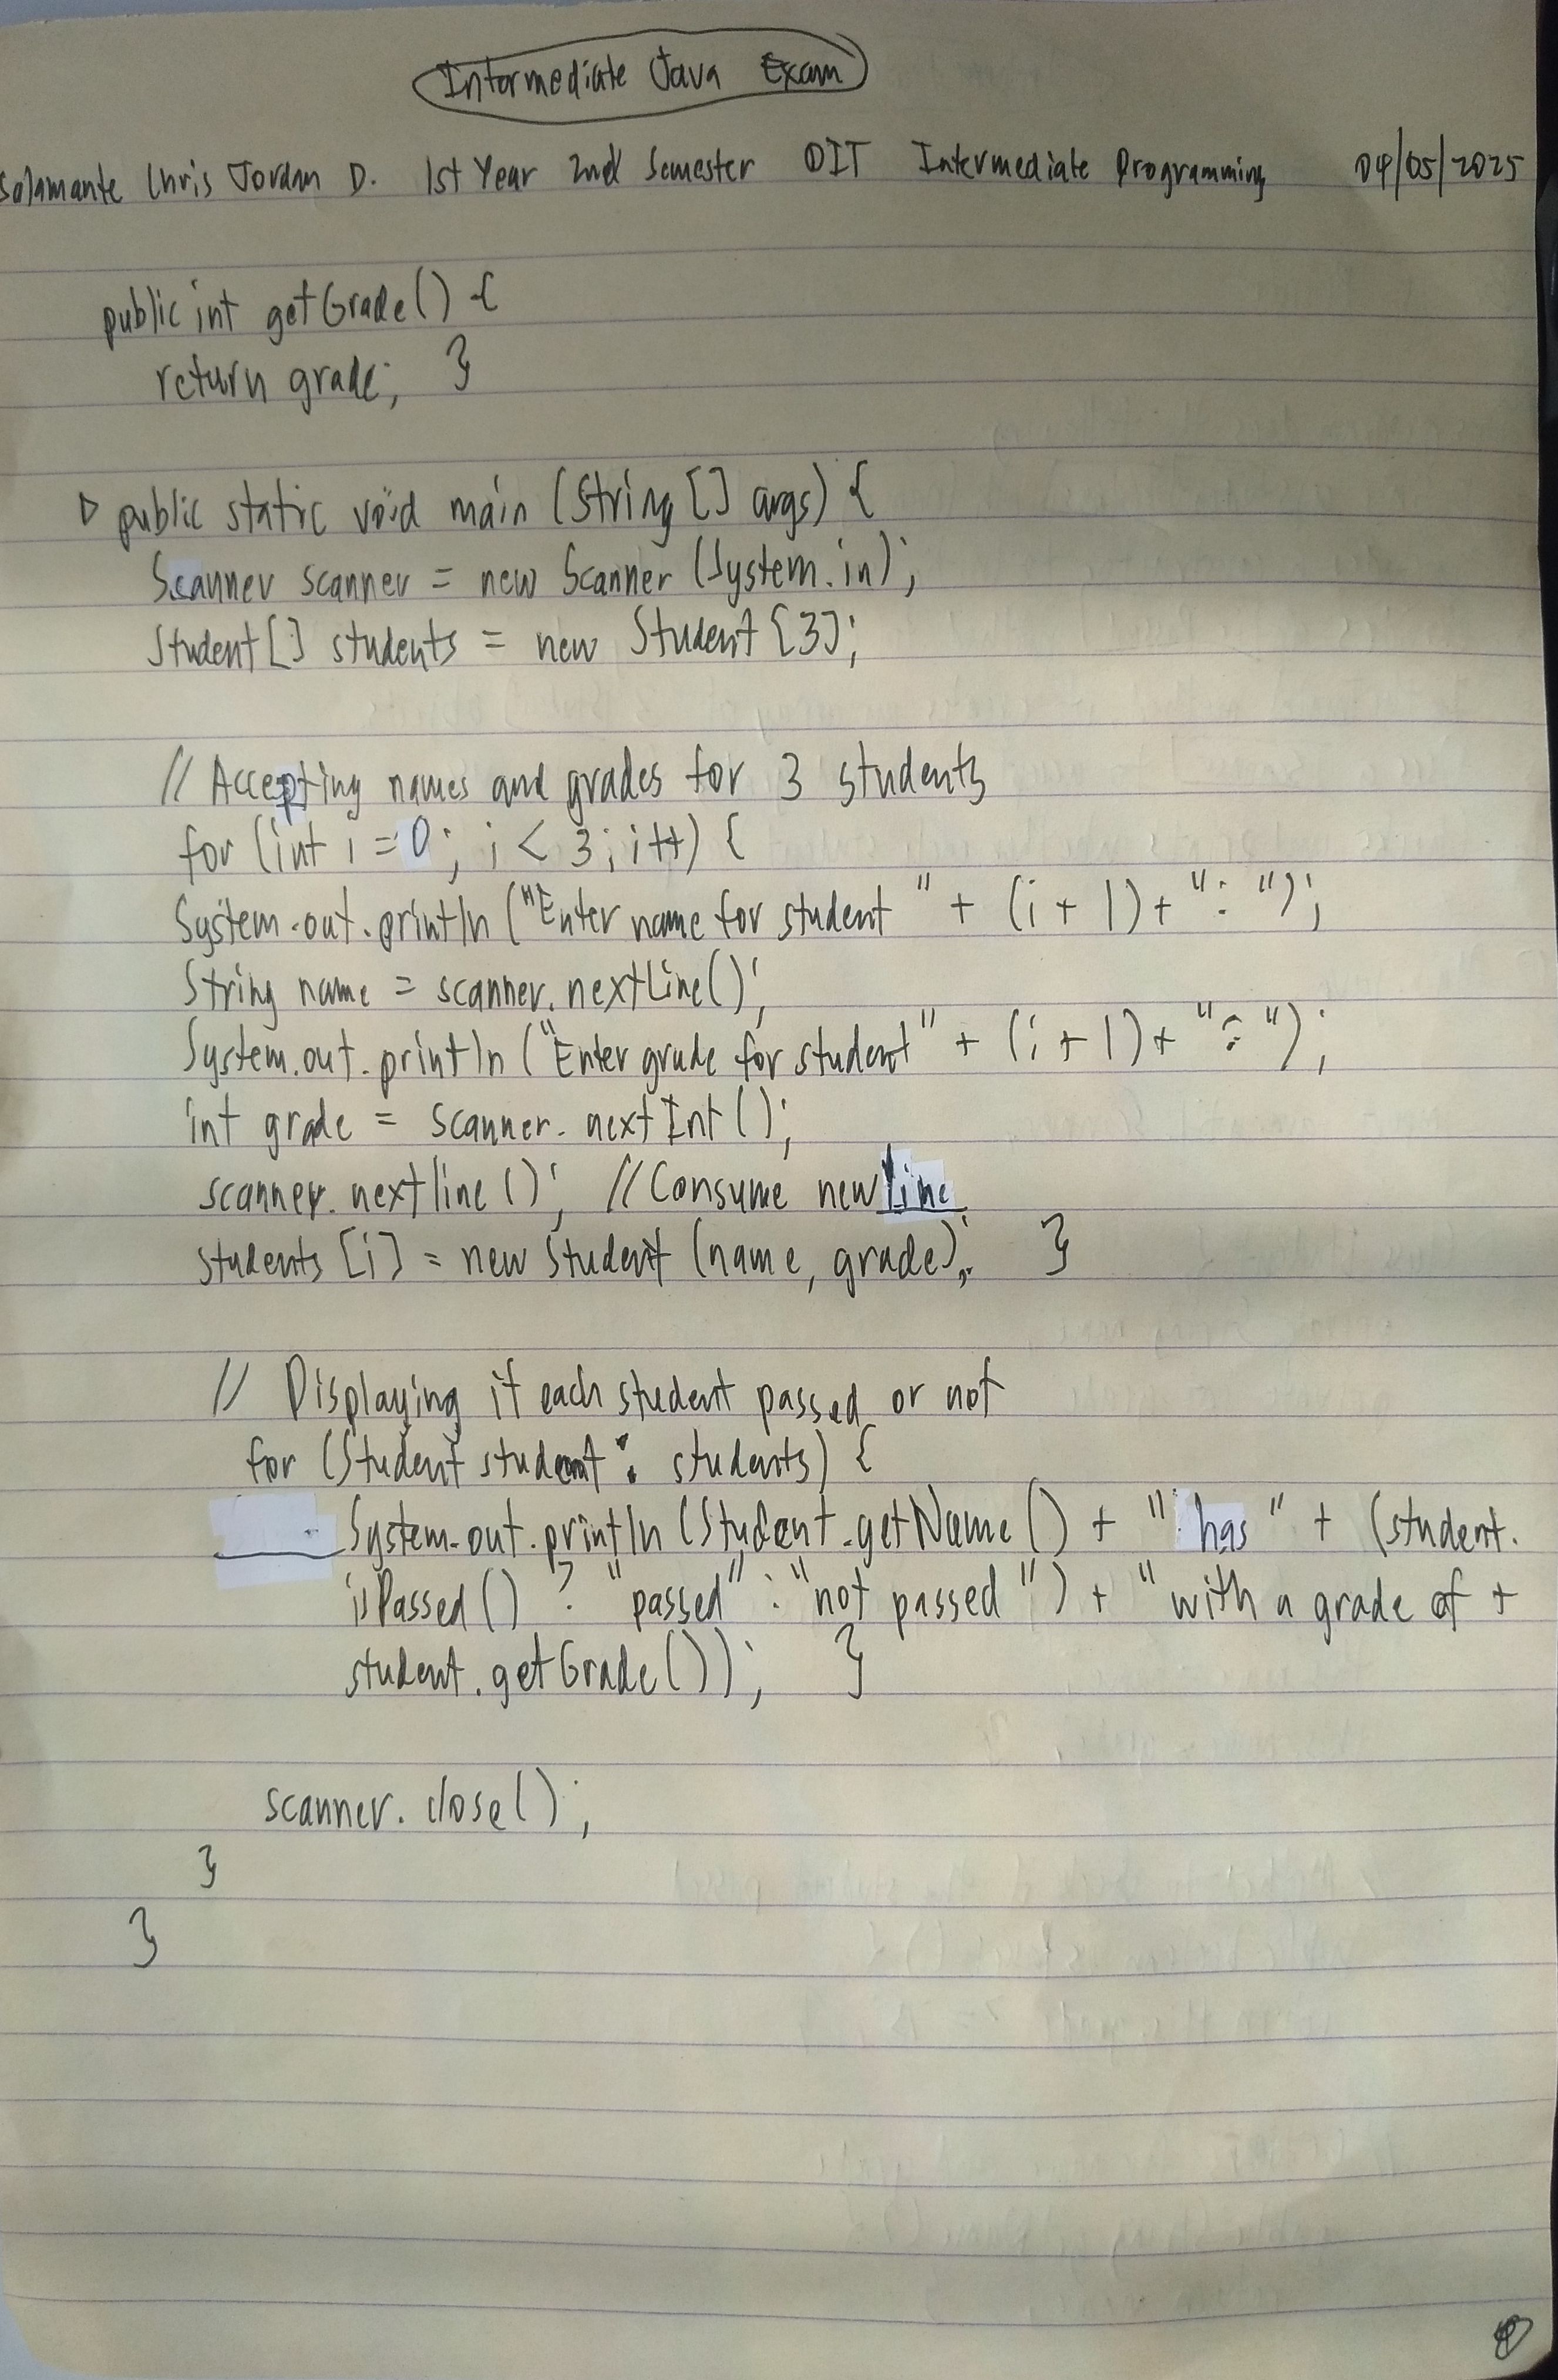 Intermediate Java Exam
Salamante Chris Jordan D. 1st Year 2nd Semester DIT Intermediate Programming 04/05/2025
public int getGrade() {
return grade; }
▷ public static void main (String [] args) {
Scanner scanner = new Scanner (System.in);
Student[] students = new Student [3];
// Accepting names and grades for 3 students
for (int i = 0; i < 3; i++) {
System.out.println ("Enter name for student " + (i + 1) + ": ");
String name = scanner.nextLine();
System.out.println ("Enter grade for student" + (i + 1) + ": ");
int grade = scanner.nextInt();
scanner.nextline(); // Consume newline
students [i] = new Student (name, grade); }
// Displaying if each student passed or not
for (Student student : students) {
System.out.println (Student.getName() + " has " + (student.
isPassed() ? "passed" : "not passed") + "with a grade of +
student.getGrade()); }
scanner.close();
}
}